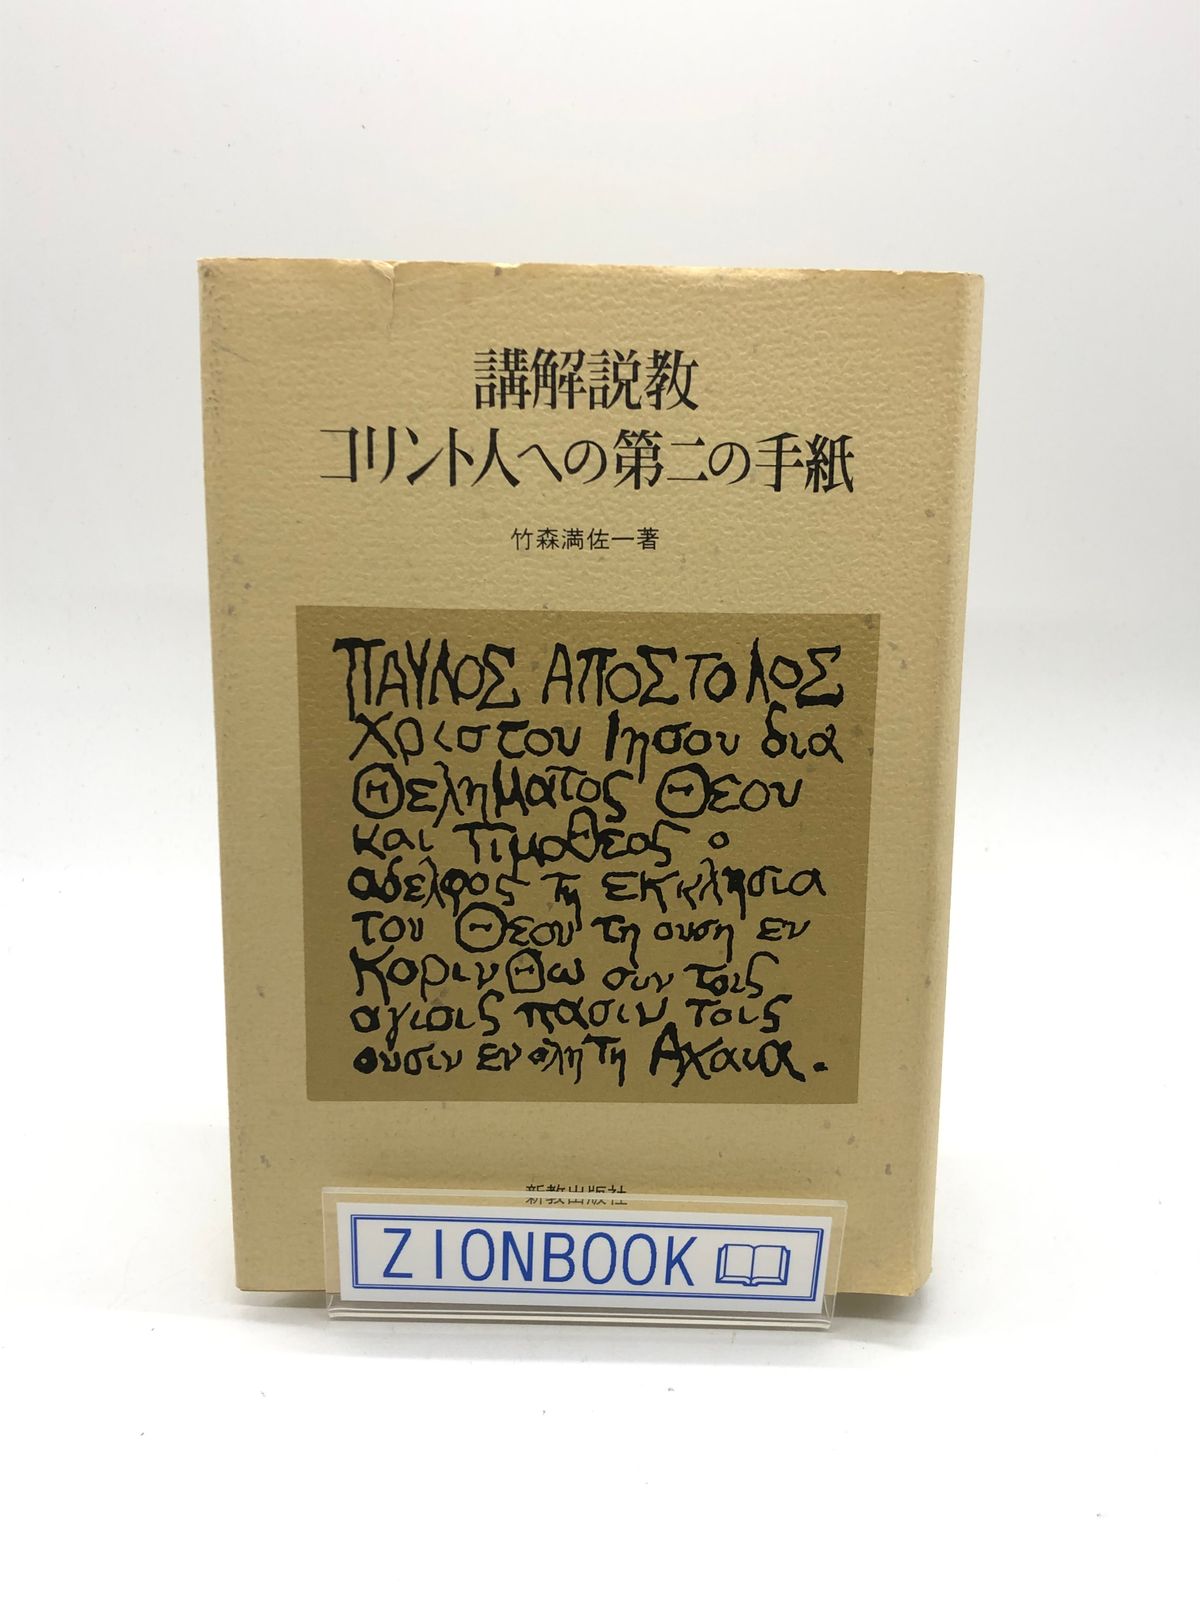 講解説教
コリント人への第二の手紙
竹森満佐一著
ΠΑΥΛΟΣ ΑΠΟΣΤΟΛΟΣ
Χριστου Ιησου δια
Θεληματος Θεου
και Τιμοθεος ο
αδελφος τη εκκλησια
του Θεου τη ουση εν
ΚορινΘω συν τοις
αγιοις πασιν τοις
ουσιν εν ολη τη Αχαια.
新教出版社
ZIONBOOK